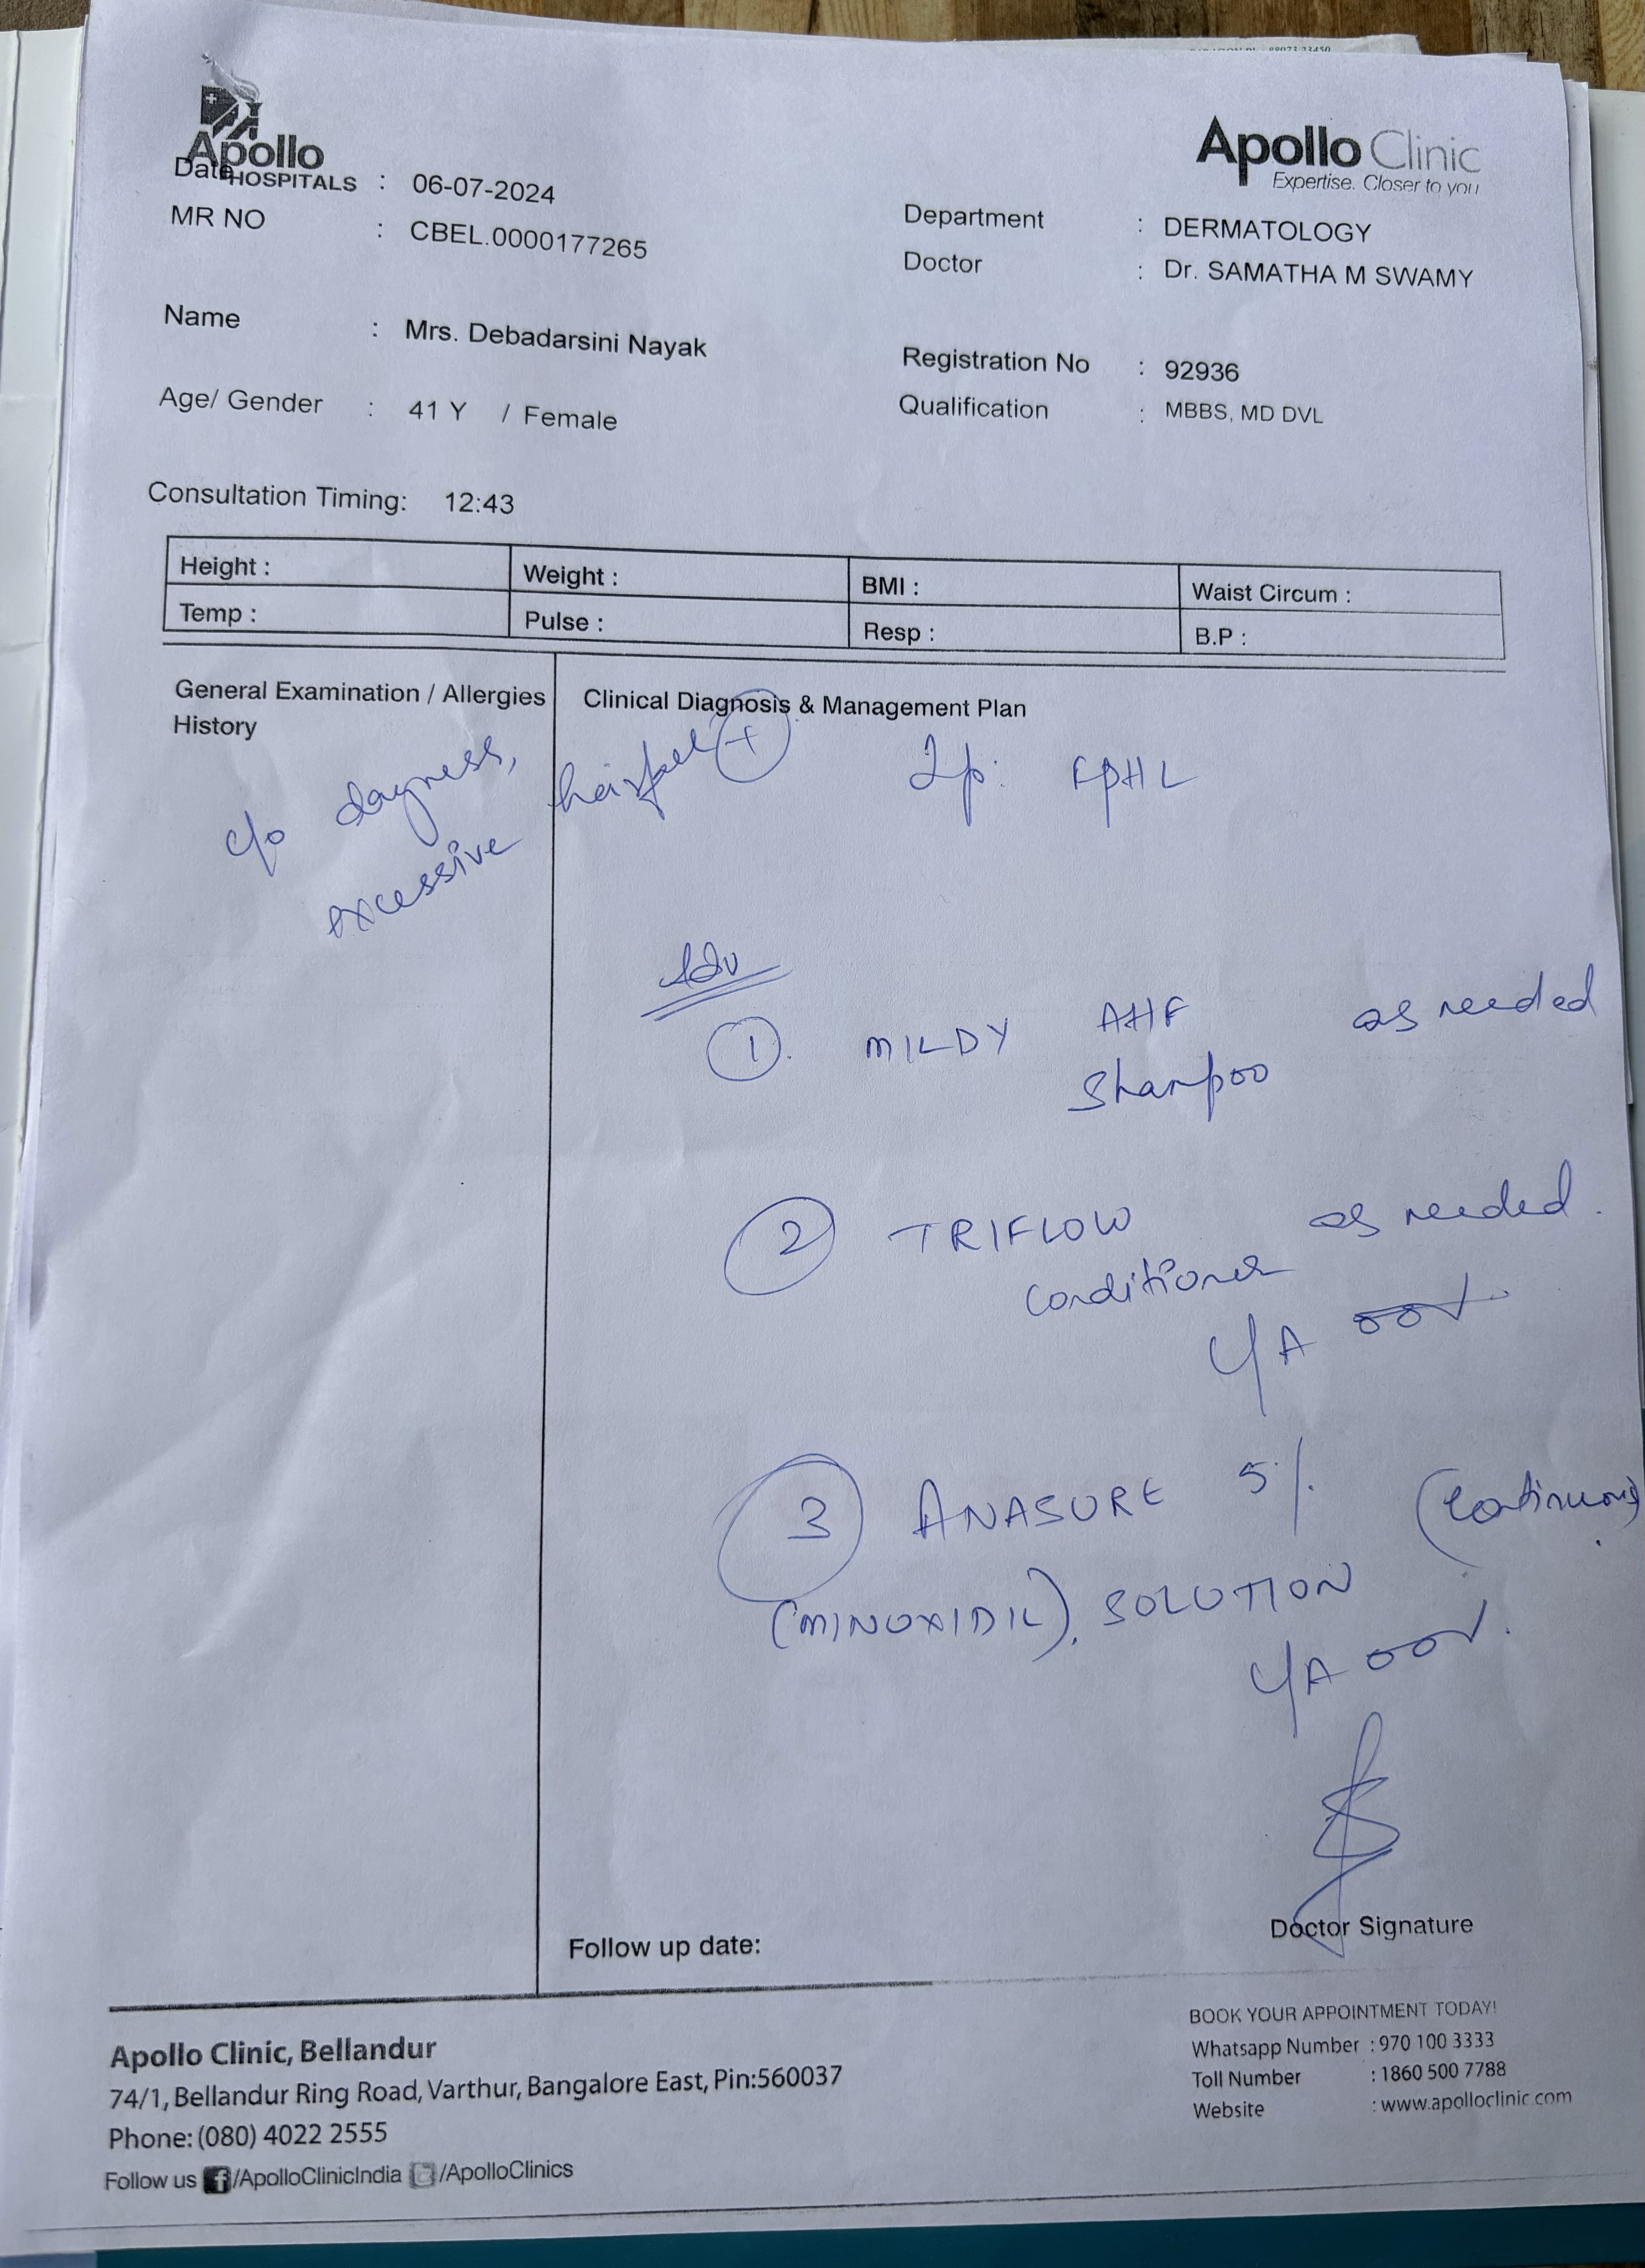 Apollo
HOSPITALS
Apollo Clinic
Expertise. Closer to you
Date : 06-07-2024
MR NO : CBEL.0000177265
Department : DERMATOLOGY
Doctor : Dr. SAMATHA M SWAMY
Name : Mrs. Debadarsini Nayak
Registration No : 92936
Age/ Gender : 41 Y / Female
Qualification : MBBS, MD DVL
Consultation Timing: 12:43
Height : Weight : BMI : Waist Circum :
Temp : Pulse : Resp : B.P :
General Examination / Allergies
History
c/o
excessive hairfall +
Clinical Diagnosis & Management Plan
FPHL
Adv
1. MILDY AHF as needed
Shampoo
2 TRIFLOW as needed.
Conditioner
3 ANASURE 5%
(MINOXIDIL). SOLUTION
Follow up date:
Doctor Signature
Apollo Clinic, Bellandur
74/1, Bellandur Ring Road, Varthur, Bangalore East, Pin:560037
Phone: (080) 4022 2555
Follow us f/ApolloClinicIndia /ApolloClinics
BOOK YOUR APPOINTMENT TODAY!
Whatsapp Number : 970 100 3333
Toll Number : 1860 500 7788
Website : www.apolloclinic.com